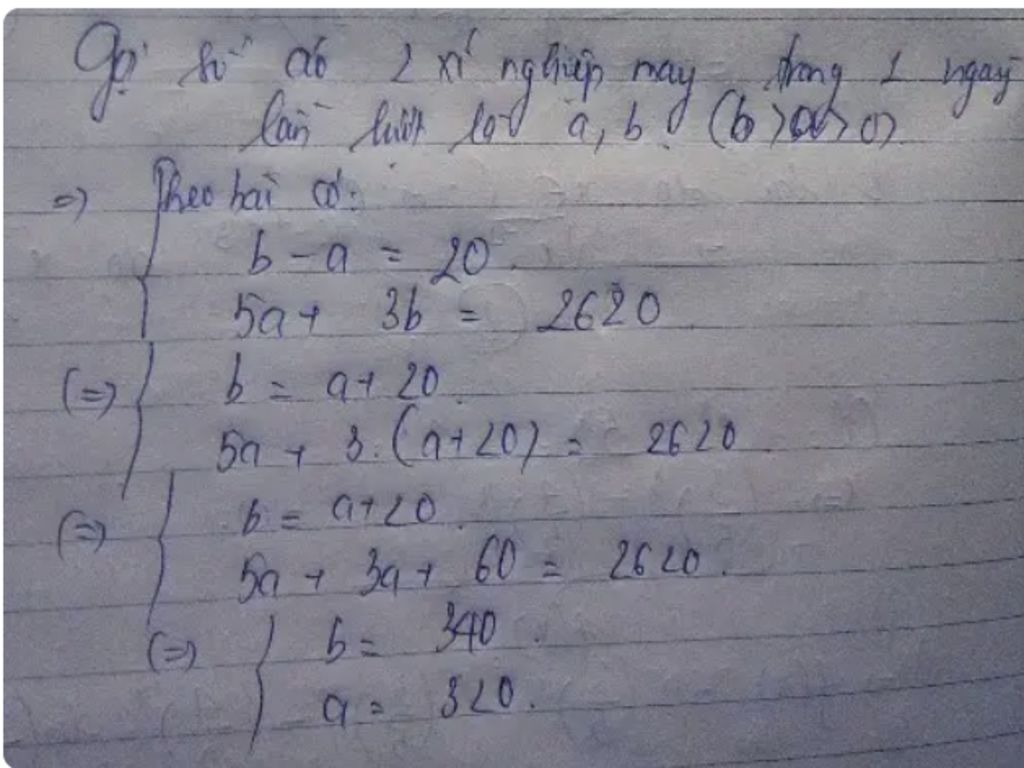 Gọi số áo 2 xí nghiệp may trong 1 ngày
lần lượt là a, b. (b>a>0)
=> Theo bài có:
b - a = 20.
5a + 3b = 2620
(=) b = a + 20.
5a + 3.(a+20) = 2620
(=) b = a+20.
5a + 3a + 60 = 2620.
(=) b = 340.
a = 320.